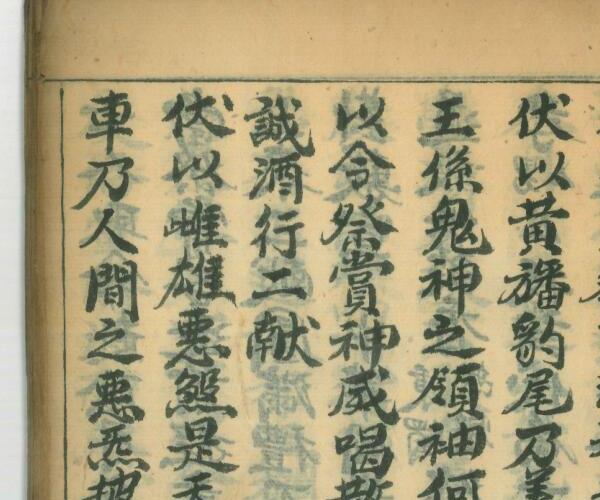 伏以黄旛豹尾乃
王係鬼神之領袖何
以令祭賞神威喝
誠酒行二献
伏以雌雄悪煞是
車乃人間之悪炁